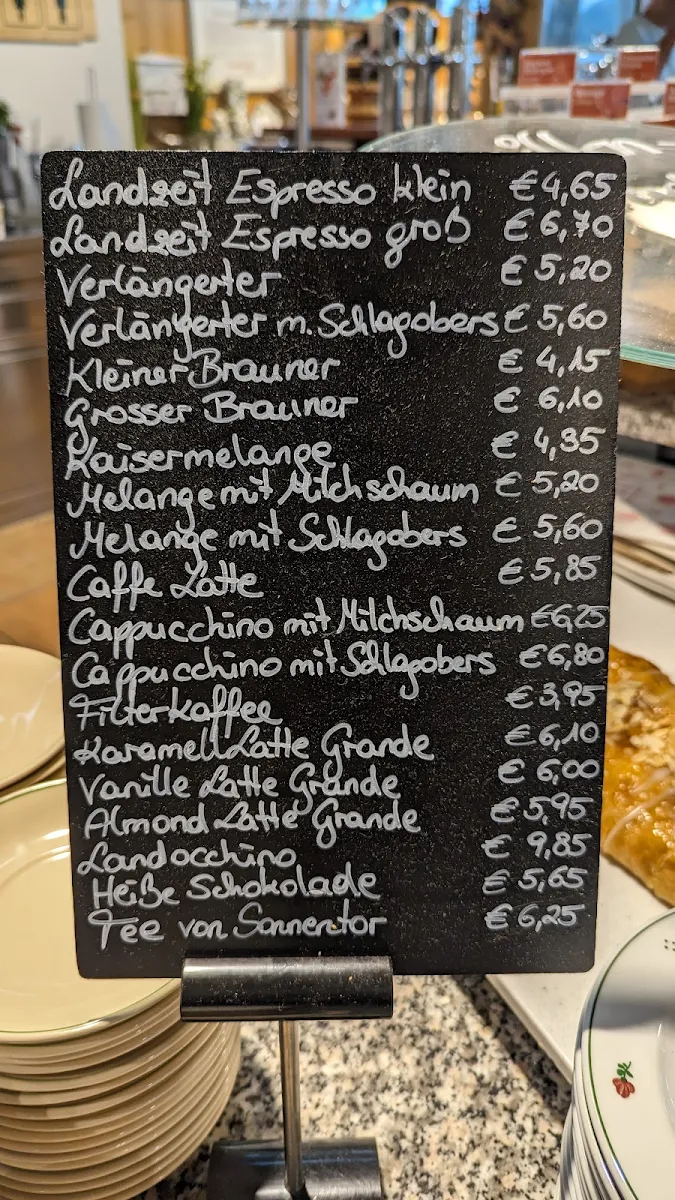 Landzeit Espresso klein €4,65
Landzeit Espresso groß €6,70
Verlängerter €5,20
Verlängerter m. Schlagobers €5,60
Kleiner Brauner €4,15
Grosser Brauner €6,10
Kaisermelange €4,35
Melange mit Milchschaum €5,20
Melange mit Schlagobers €5,60
Caffe Latte €5,85
Cappucchino mit Milchschaum €6,25
Cappucchino mit Schlagobers €6,80
Filterkaffee €3,95
Karamell Latte Grande €6,10
Vanille Latte Grande €6,00
Almond Latte Grande €5,95
Landocchino €9,85
Heiße Schokolade €5,65
Tee von Sonnentor €6,25